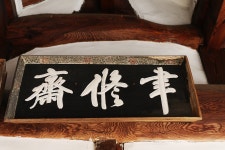 聿修齋